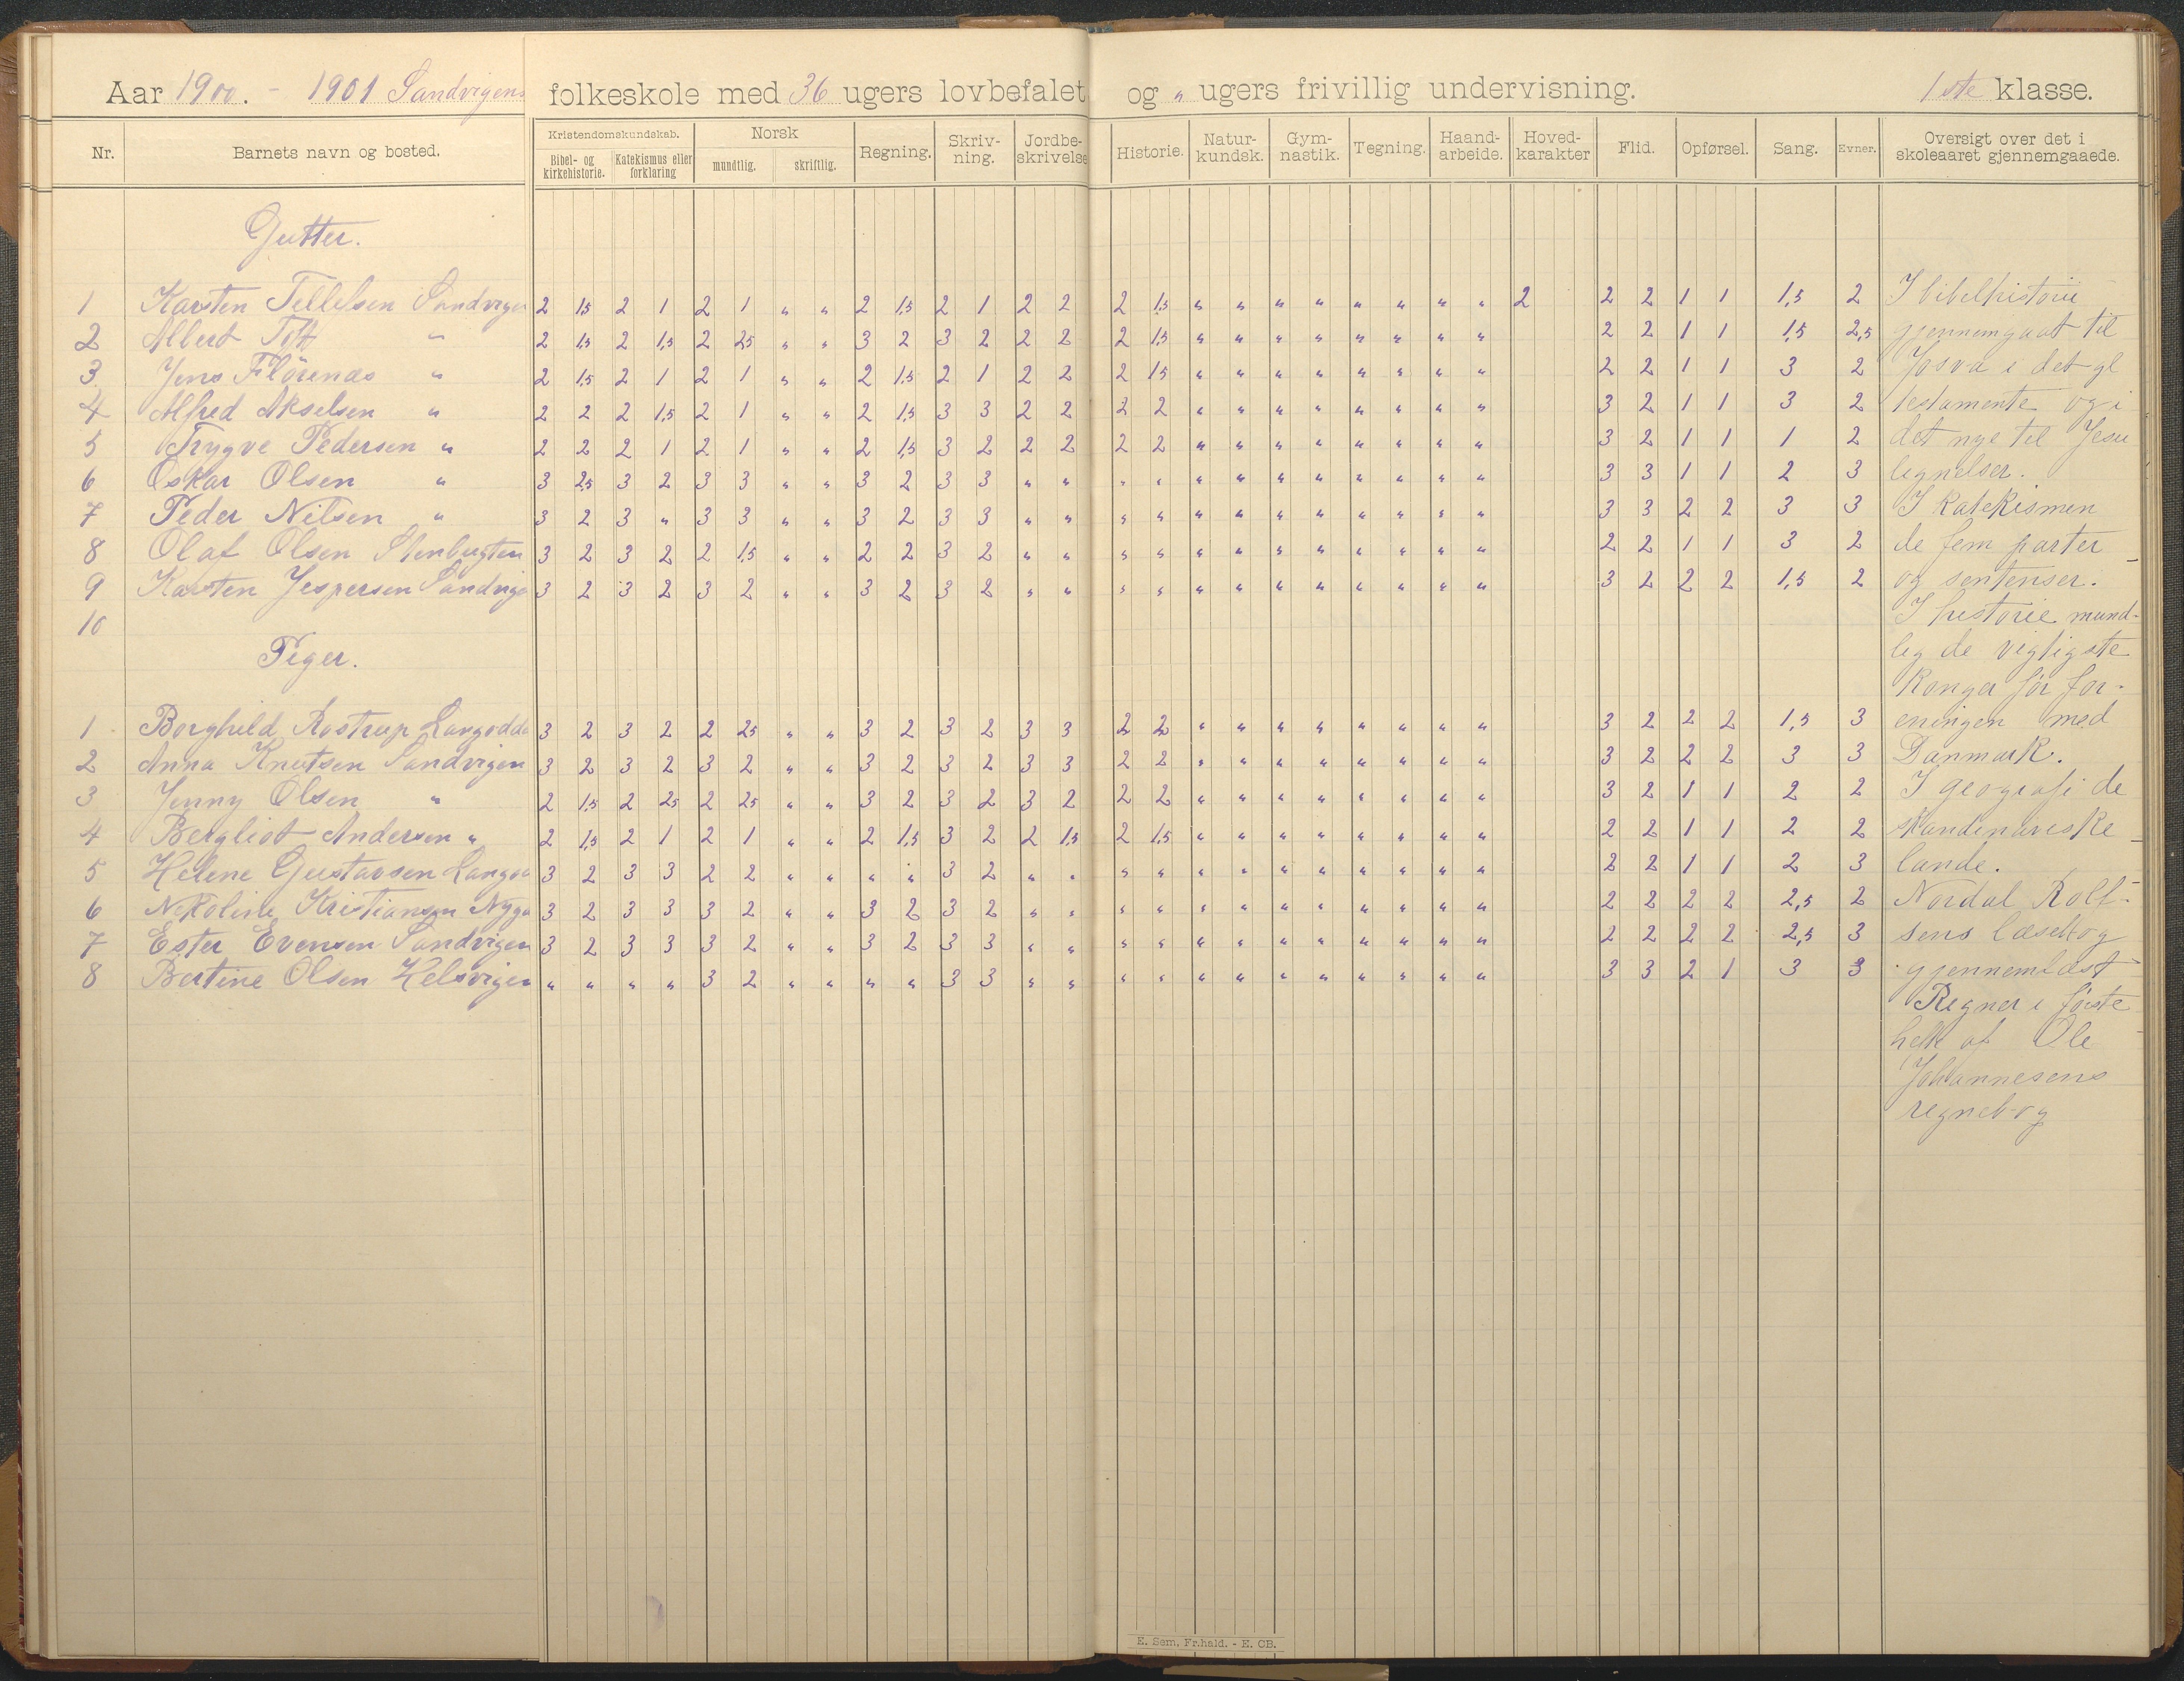 Aar 1900. - 1901 Sandvigens folkeskole med 36 ugers lovbefalet og " ugers frivillig undervisning. 1ste klasse.
Nr. Barnets navn og bosted. Kristendomskundskab. Norsk Regning. Skriv-ning. Jordbe-skrivelse Historie. Natur-kundsk. Gym-nastik. Tegning. Haand-arbeide. Hoved-karakter Flid. Opførsel. Sang. Evner. Oversigt over det i skoleaaret gjennemgaaede.
Bibel- og kirkehistorie. Katekismus eller forklaring mundtlig. skriftlig.
Gutter.
1 Karsten Tellefsen Sandvigen 2 1,5 2 1 2 1 " " 2 1,5 2 1 2 2 2 1,5 " " " " " " " " 2 2 2 1 1 1,5 2 I bibelhistorie
2 Albert Tott " 2 1,5 2 1,5 2 2,5 " " 3 2 3 2 2 2 2 1,5 " " " " " " " " 2 2 1 1 1,5 2,5 gjennemgaat til
3 Jens Flörenas " 2 1,5 2 1 2 1 " " 2 1,5 2 1 2 2 2 1,5 " " " " " " " " 2 2 1 1 3 2 Josva i det gl
4 Alfred Akselsen " 2 2 2 1,5 2 1 " " 2 1,5 3 3 2 2 2 2 " " " " " " " " 3 2 1 1 3 2 testamente og i
5 Trygve Pedersen " 2 2 2 1 2 1 " " 2 1,5 3 2 2 2 2 2 " " " " " " " " 3 2 1 1 1 2 det nye til Jesu
6 Oskar Olsen " 3 2,5 3 2 3 3 " " 3 2 3 3 " " " " " " " " " " " " 3 3 1 1 2 3 lignelser.
7 Peder Nilsen " 3 2 3 " 3 3 " " 3 2 3 3 " " " " " " " " " " " " 3 3 2 2 3 3 I Katekismen
8 Olaf Olsen Stenbugten 3 2 3 2 2 1,5 " " 2 2 3 2 " " " " " " " " " " " " 2 2 1 1 3 2 de fem parter
9 Karsten Jespersen Sandvige 3 2 3 2 3 2 " " 3 2 3 2 " " " " " " " " " " " " 3 2 2 2 1,5 2 og sentenser.
10 I historie mund-
Piger. lig de vigtigste
Konger før for-
1 Borghild Rostrup Langodde 3 2 3 2 2 2,5 " " 3 2 3 2 3 3 2 2 " " " " " " " " 3 2 2 2 1,5 3 eningen med
2 Anna Knutsen Sandvigen 3 2 3 2 3 2 " " 3 2 3 2 3 3 2 2 " " " " " " " " 3 2 2 2 3 3 Danmark.
3 Jenny Olsen " 2 1,5 2 2,5 2 2,5 " " 3 2 3 2 3 2 2 2 " " " " " " " " 3 2 1 1 2 2 I geografi de
4 Bergliot Andersen " 2 1,5 2 1 2 1 " " 2 1,5 3 2 2 1,5 2 1,5 " " " " " " " " 2 2 1 1 2 2 skandinaviske
5 Helene Gustavsen Langod 3 2 3 3 2 2 " " " " 3 2 " " " " " " " " " " " " 2 2 1 1 2 3 lande.
6 Nikoline Kristiansen Nyga 3 2 3 3 3 2 " " 3 2 3 2 " " " " " " " " " " " " 2 2 2 2 2,5 2 Nordal Rolf-
7 Ester Evensen Sandvigen 3 2 3 3 3 2 " " 3 2 3 3 " " " " " " " " " " " " 2 2 2 2 2,5 3 sens læsebog
8 Bertine Olsen Kelsvigen " " " " 3 2 " " " " 3 3 " " " " " " " " " " " " 3 3 2 1 3 3 gjennemlæst
Regner i første
hefte af Ole
Johannesens
regnebog
E. Sem, Fr.hald. - E. CB.